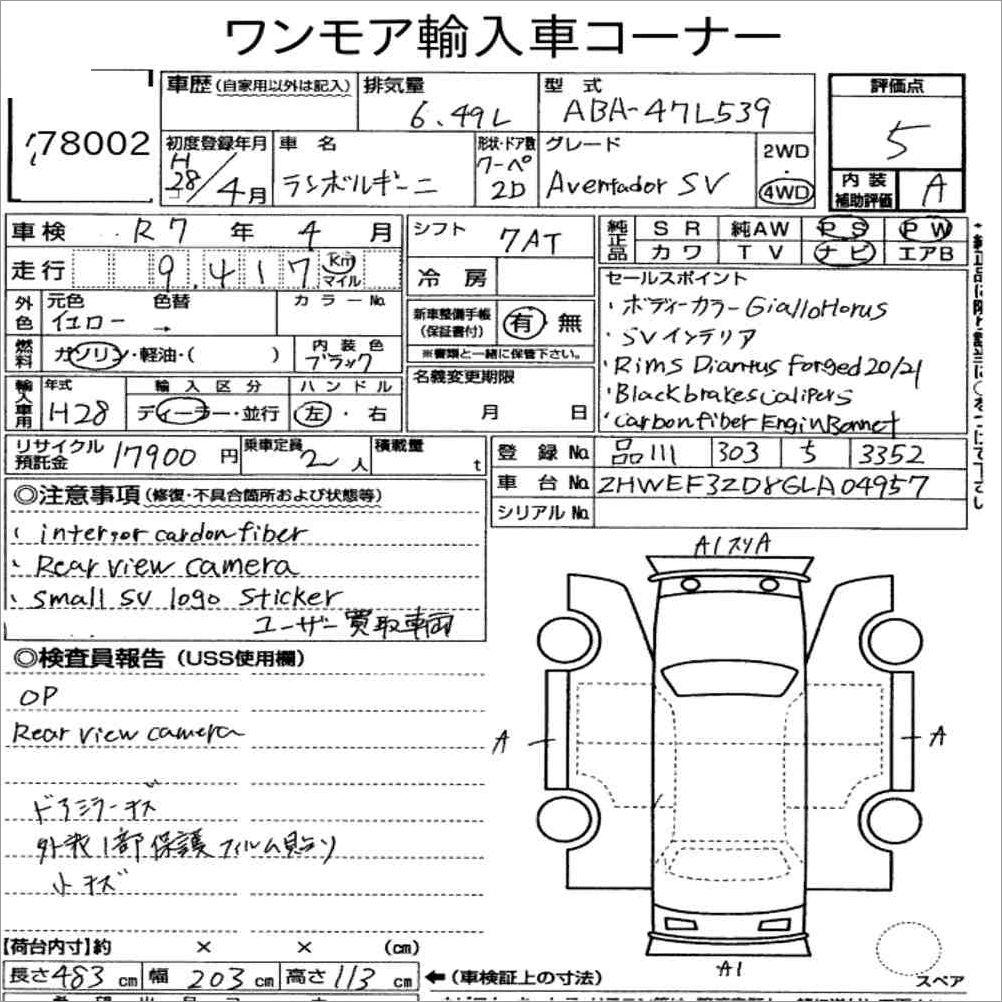 ワンモア輸入車コーナー
78002
車歴(自家用以外は記入) 排気量 6.49L 型式 ABA-47L539 評価点 5
初度登録年月 H28/4月 車名 ランボルギーニ 形状・ドア数 クーペ 2D グレード Aventador SV 2WD 4WD 内装補助評価 A
車検 R7年 4月 シフト 7AT 純正品 SR 純AW PS PW
カワ TV ナビ エアB
走行 9,417 Km マイル 冷房
外色 元色 イエロー 色替 → カラーNo.
新車整備手帳(保証書付) 有 無
※書類と一緒に保管下さい。
燃料 ガソリン・軽油・( ) 内装色 ブラック
輸入車用 年式 H28 輸入区分 ディーラー・並行 ハンドル 左・右
名義変更期限 月 日
セールスポイント
・ボディーカラーGialloHorus
・SVインテリア
・Rims Diantus forged 20/21
・Black brakes calipers
・carbon fiber Engin Bonnet
リサイクル預託金 17900円 乗車定員 2人 積載量 t
登録No. 品川 303 ち 3352
車台No. ZHWEF3ZD8GLA04957
シリアルNo.
◎注意事項(修復・不具合箇所および状態等)
、interior cardon fiber
、Rear view camera
、small SV logo Sticker
ユーザー買取車両
◎検査員報告(USS使用欄)
OP
Rear view camera
ドアミラーキズ
外装1部保護フィルム貼り
小キズ
A1 スリA
A
A
A1
スペア
【荷台内寸】約 × × (cm)
長さ483cm 幅203cm 高さ113cm ←(車検証上の寸法)